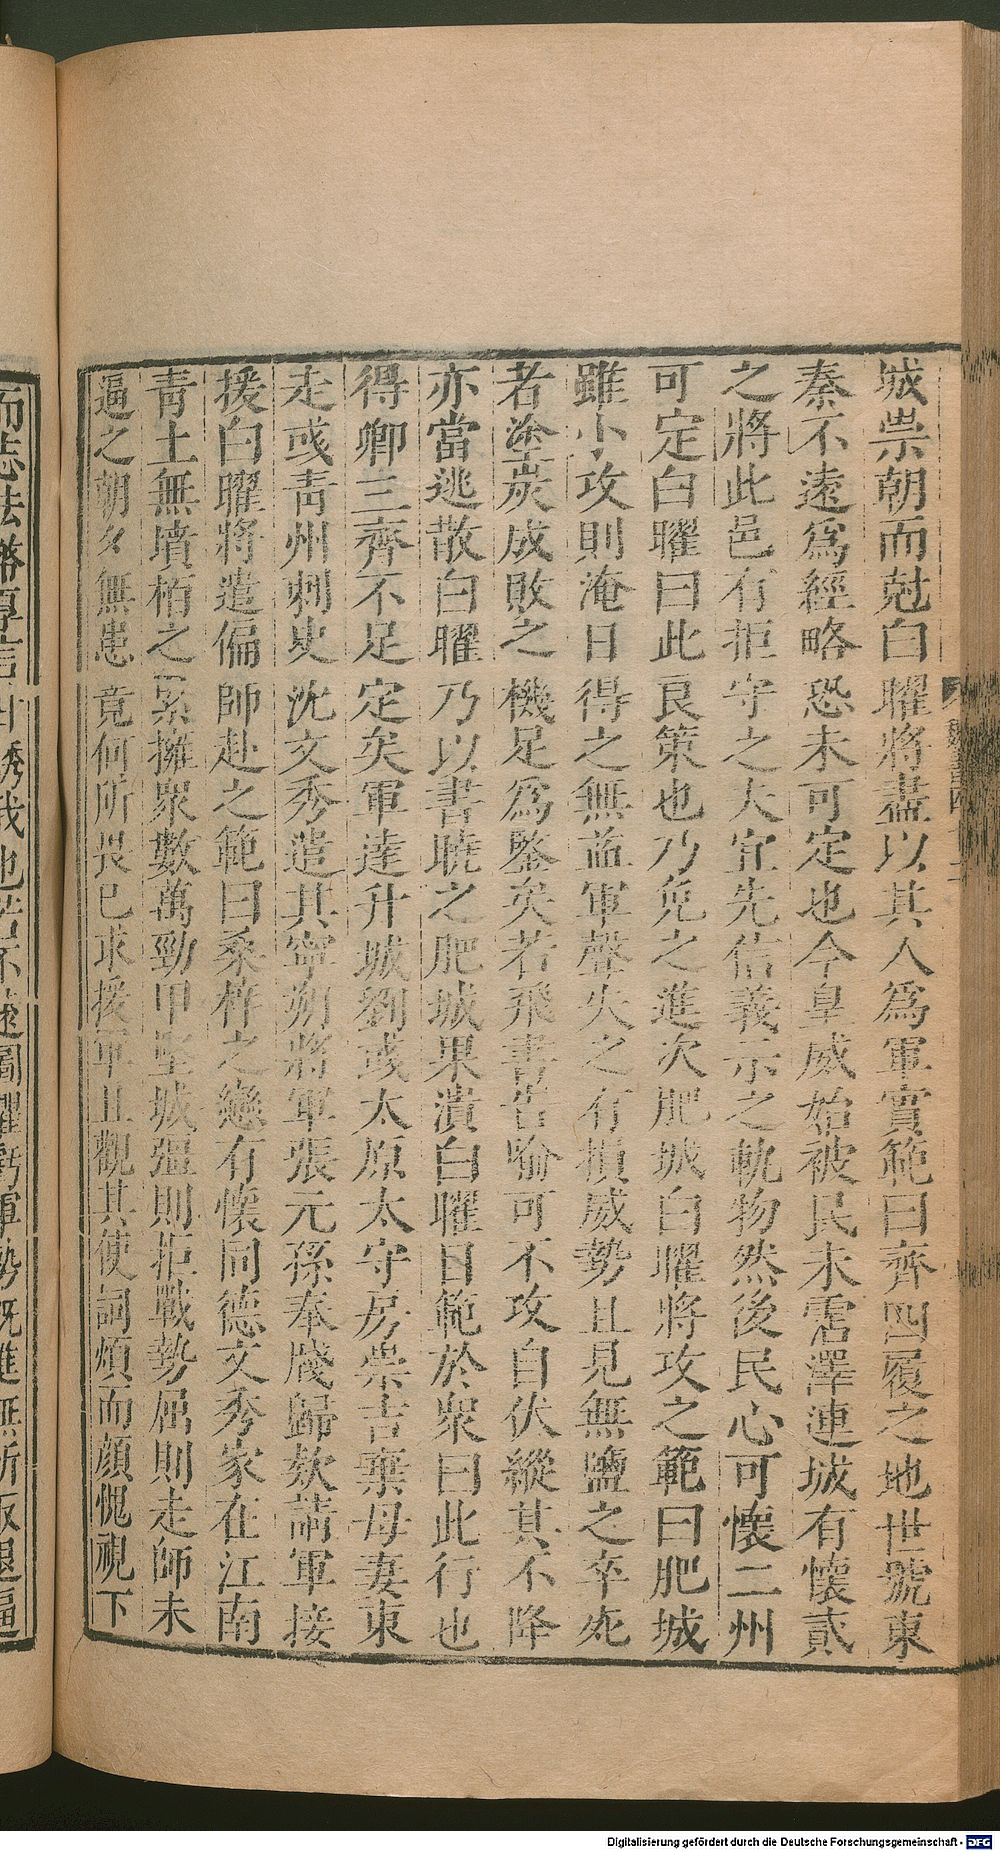 城崇朝而尅白曜將盡以其人為軍實範曰齊四履之地世號東
秦不遠為經略恐未可定也今皇威始被民未霑澤連城有懷貳
之將此邑有拒守之夫宜先信義示之軌物然後民心可懷二州
可定白曜曰此良策也乃免之進次肥城白曜將攻之範曰肥城
雖小攻則淹日得之無益軍聲失之有損威勢且見無鹽之卒死
者塗炭成敗之機足為鑒矣若飛書告喻可不攻自伏縱其不降
亦當逃散白曜乃以書曉之肥城果潰白曜目範於衆曰此行也
得卿三齊不足定矣軍達升城劉彧太原太守房崇吉棄母妻東
走彧青州刺史沈文秀遣其寧朔將軍張元孫奉牋歸款請軍接
援白曜將遣偏師赴之範曰桑梓之戀有懷同德文秀家在江南
青土無墳栢之累擁衆數萬勁甲堅城彊則拒戰勢屈則走師未
逼之朝夕無患竟何所畏已求援軍且觀其使詞煩而顔愧視下
魏書四
而志法幣厚言甘誘我也若不遠圖懼虧軍勢既進無所取退逼
Digitalisierung gefördert durch die Deutsche Forschungsgemeinschaft - DFG